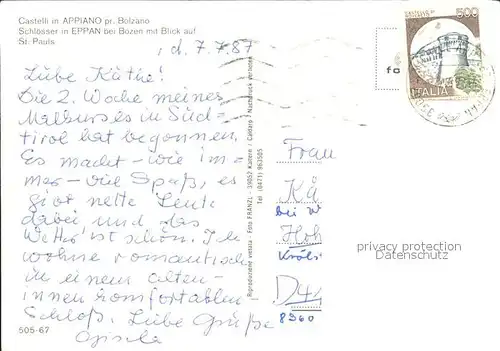 Castelli in APPIANO pr. Bolzano
Schlösser in EPPAN bei Bozen mit Blick auf
St. Pauls
, d. 7.7.87
Liebe Käthe!
Die 2. Woche meines
Malkurses in Süd-
tirol hat begonnen.
Es macht - wie im-
mer - viel Spaß, es
gibt nette Leute
dabei und das
Wetter ist schön. Ich
wohne romantisch
in einem alten -
innen komfortablen
Schloß. Liebe Grüße
Gisela
505-67
Riproduzione vietata - Foto FRANZL - 39052 Kaltern / Caldaro / Nachdruck verboten
Tel (0471) 963505
500
ITALIA
fo
Frau
Kä
bei W
Hoh
Kröls
D-
8360
privacy protection
Datenschutz